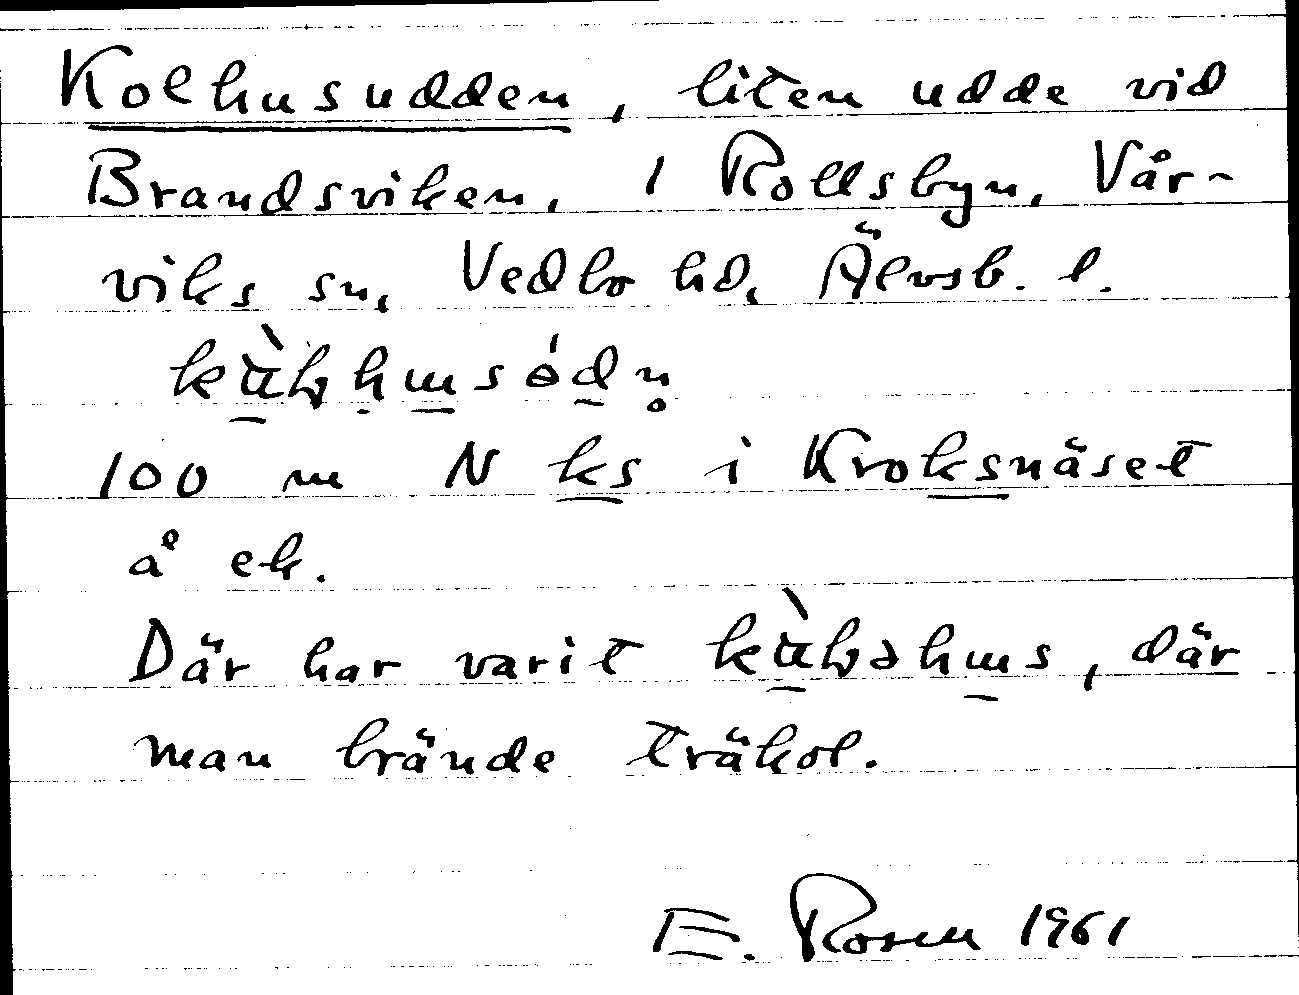 Kolhusudden, liten udde vid
Brandsviken, 1 Rollsbyn, Vår-
viks sn, Vedbo hd, Älvsb. l.
100 m N ks i Kroksnäset
å ek.
Där har varit, där
man brände träkol.
E. Rosen 1961